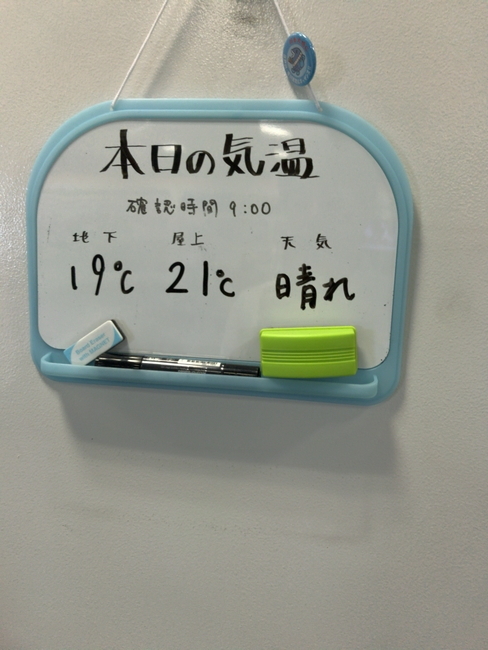 本日の気温
確認時間 9:00
地下 屋上 天気
19℃ 21℃ 晴れ